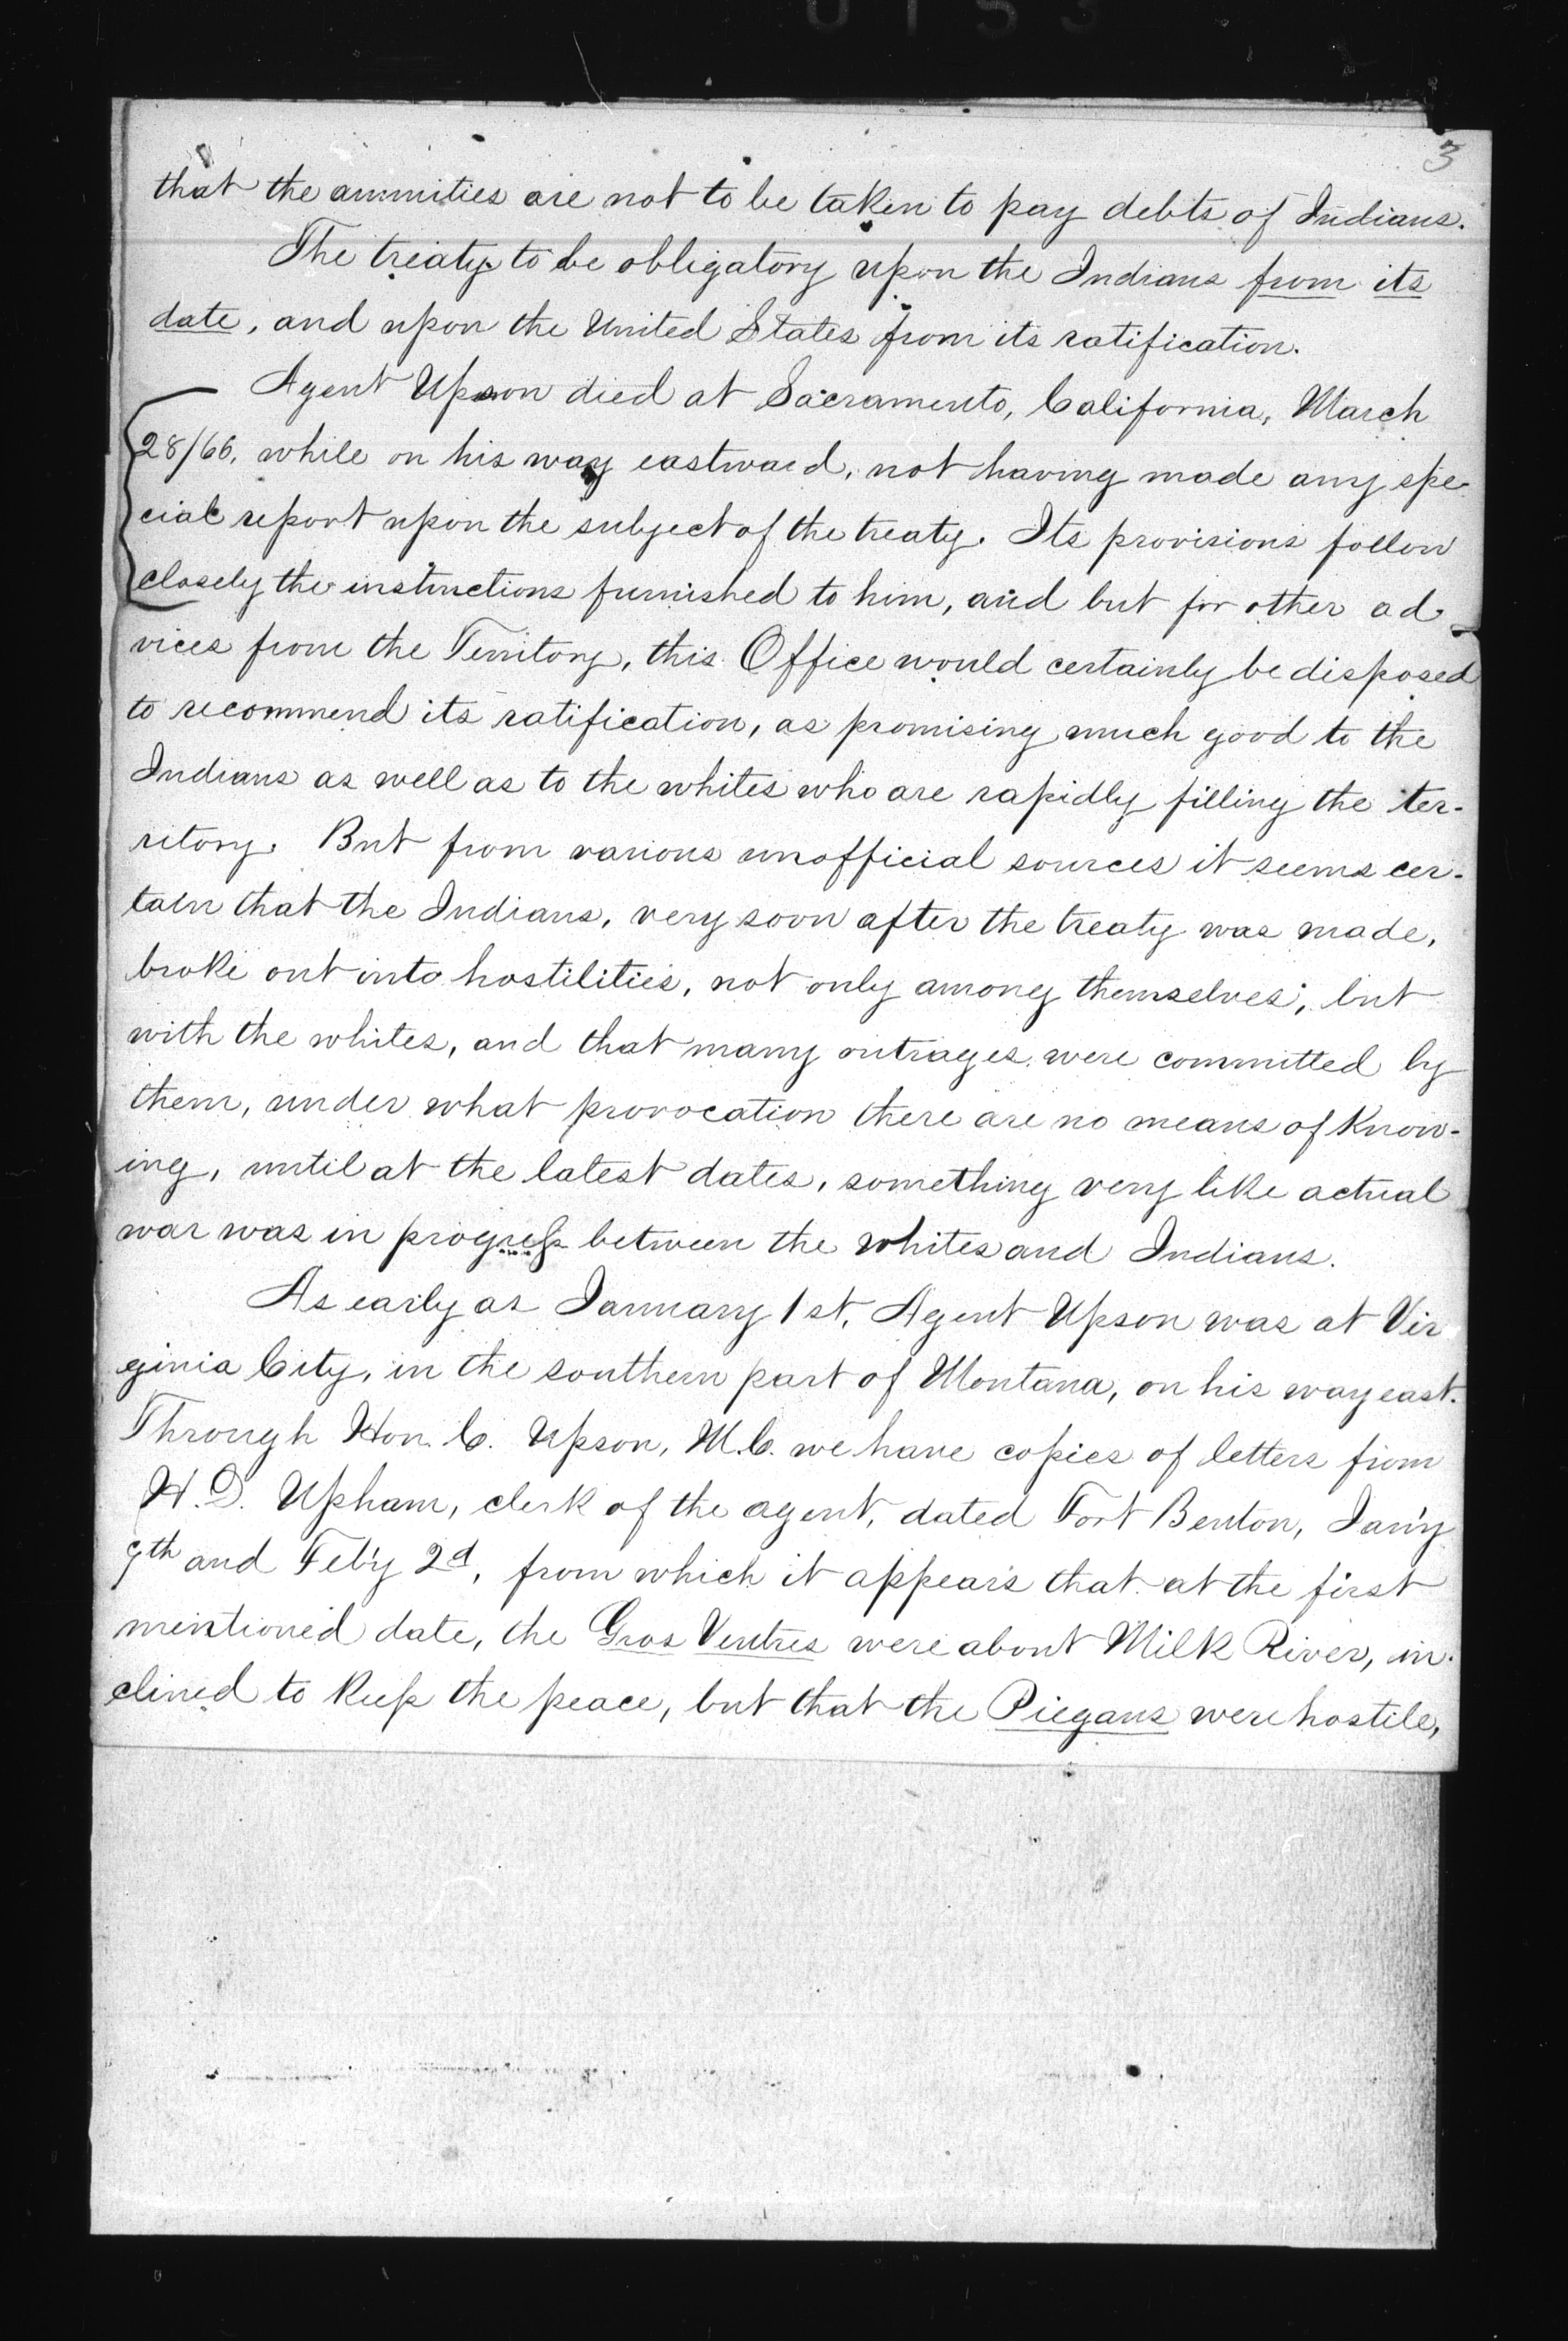 0153
3
that the annuities are not to be taken to pay debts of Indians.
The treaty to be obligatory upon the Indians from its
date, and upon the United States from its ratification.
Agent Upson died at Sacramento, California, March
28/66, while on his way eastward, not having made any spe-
cial report upon the subject of the treaty. Its provisions follow
closely the instructions furnished to him, and but for other ad-
vices from the Territory, this Office would certainly be disposed
to recommend its ratification, as promising much good to the
Indians as well as to the whites who are rapidly filling the ter-
ritory. But from various unofficial sources it seems cer-
tain that the Indians, very soon after the treaty was made,
broke out into hostilities, not only among themselves, but
with the whites, and that many outrages were committed by
them, under what provocation there are no means of know-
ing, until at the latest dates, something very like actual
war was in progress between the whites and Indians.
As early as January 1st, Agent Upson was at Vir
ginia City, in the southern part of Montana, on his way east.
Through Hon. C. Upson, M.C. we have copies of letters from
H.D. Upham, clerk of the agent, dated Fort Benton, Jan'y
9th and Feb'y 2d, from which it appears that at the first
mentioned date, the Gros Ventres were about Milk River, in-
clined to keep the peace, but that the Piegans were hostile,